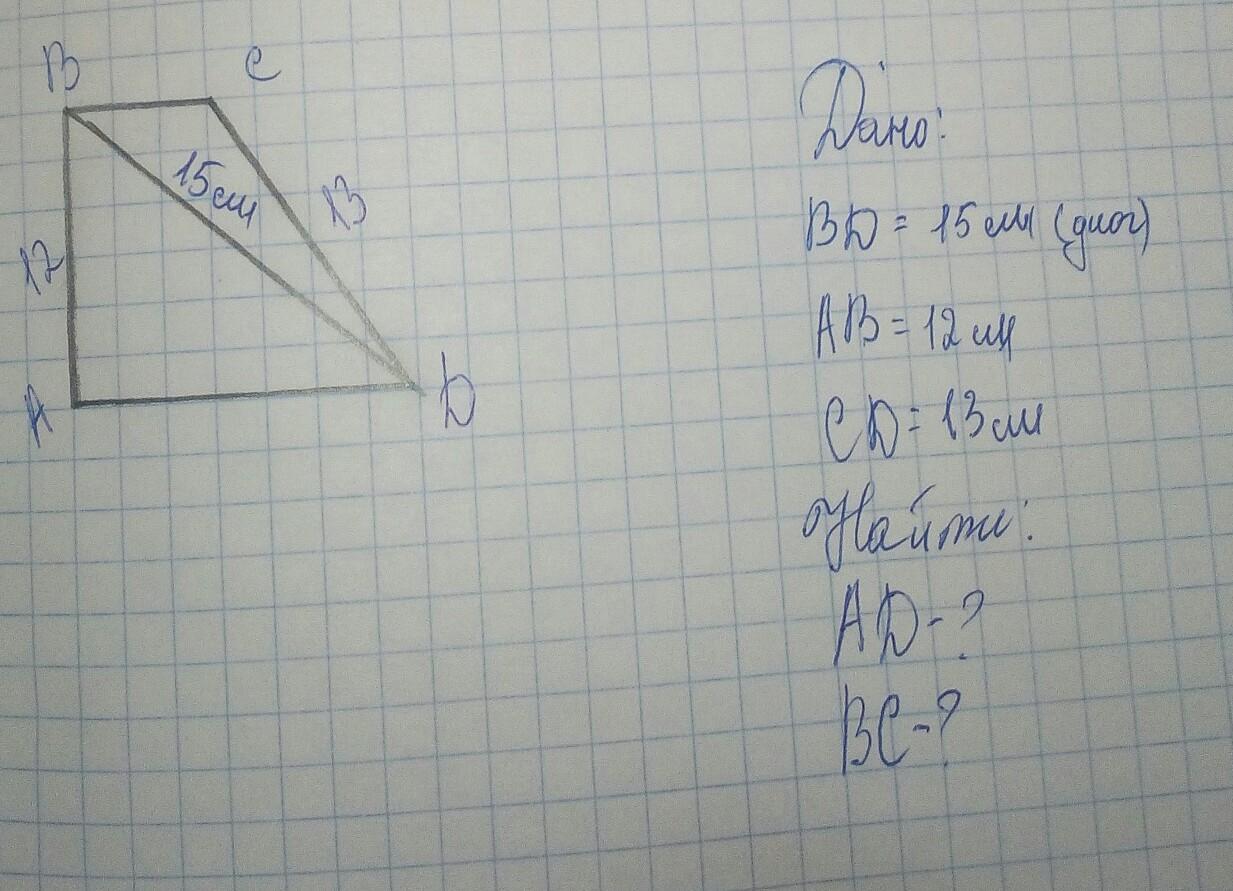 B C
15см
13
12
A
D
Дано:
BD = 15 см (диаг)
AB = 12 см
CD = 13 см
Найти:
AD - ?
BC - ?